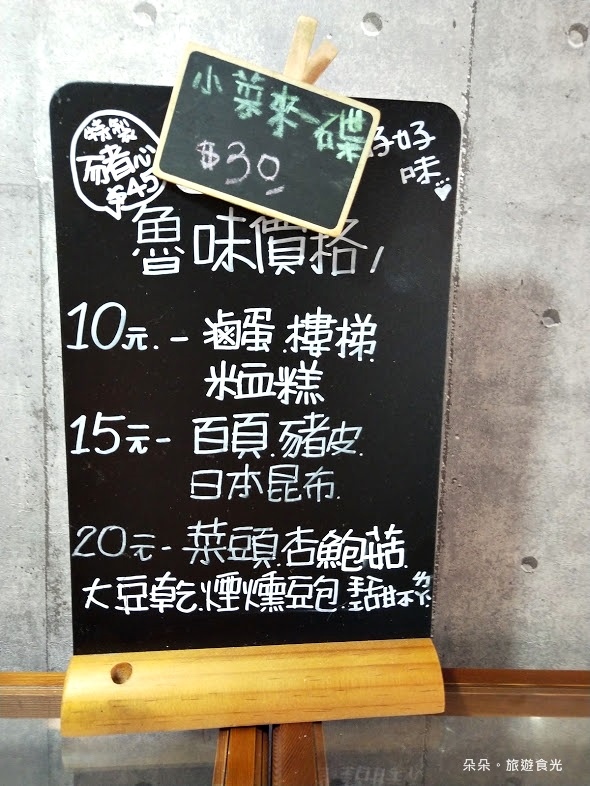 小菜來一碟
$30
特製
豬心
$45
好好
味
魯味價格
10元.-滷蛋.摟梯.
米血糕
15元-百頁.豬皮.
日本昆布.
20元-菜頭.杏鮑菇.
大豆乾.煙燻豆包.甜不ㄌㄚ.
朵朵。旅遊食光